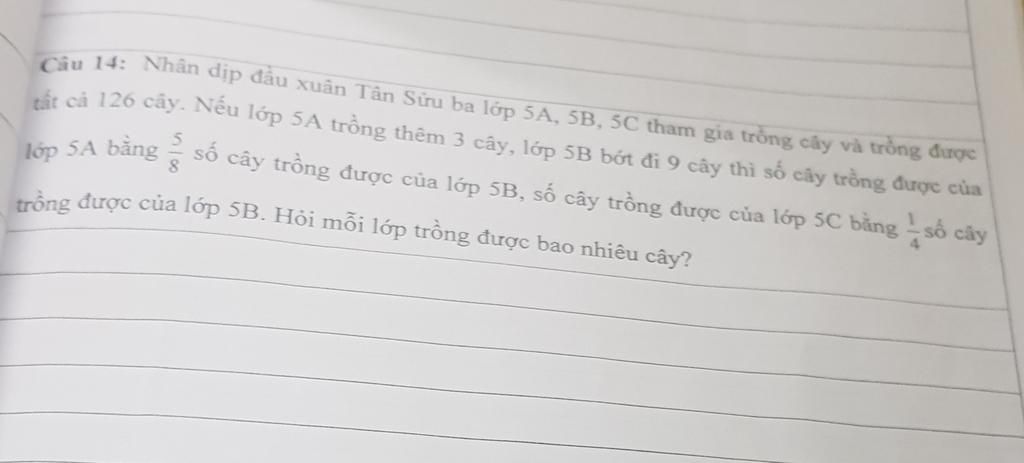 Câu 14: Nhân dịp đầu xuân Tân Sửu ba lớp 5A, 5B, 5C tham gia trồng cây và trồng được
tất cả 126 cây. Nếu lớp 5A trồng thêm 3 cây, lớp 5B bớt đi 9 cây thì số cây trồng được của
lớp 5A bằng 5/8 số cây trồng được của lớp 5B, số cây trồng được của lớp 5C bằng 1/4 số cây
trồng được của lớp 5B. Hỏi mỗi lớp trồng được bao nhiêu cây?